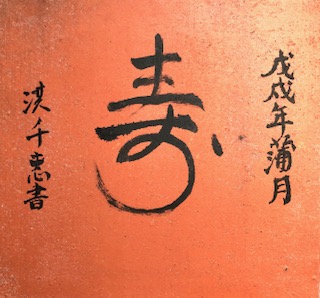 戊戌年蒲月
寿
洪千惠書